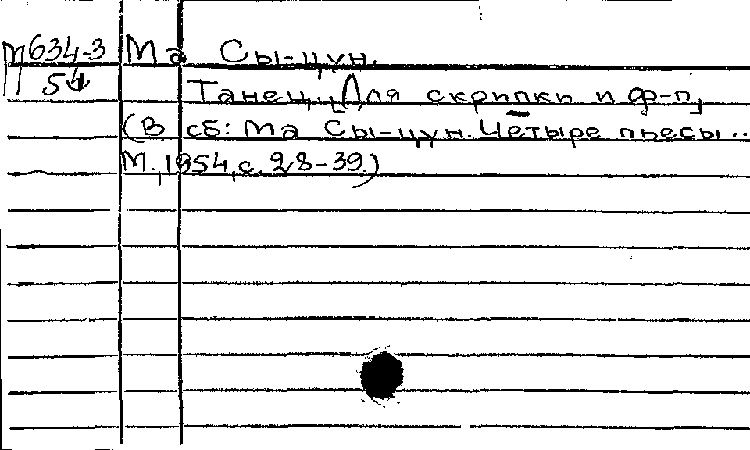 М634-3 Ма Сы-цун.
54
Танец. Для скрипки и ф-п.
(В сб: Ма Сы-цун. Четыре пьесы..
М.,1954,с.28-39.)